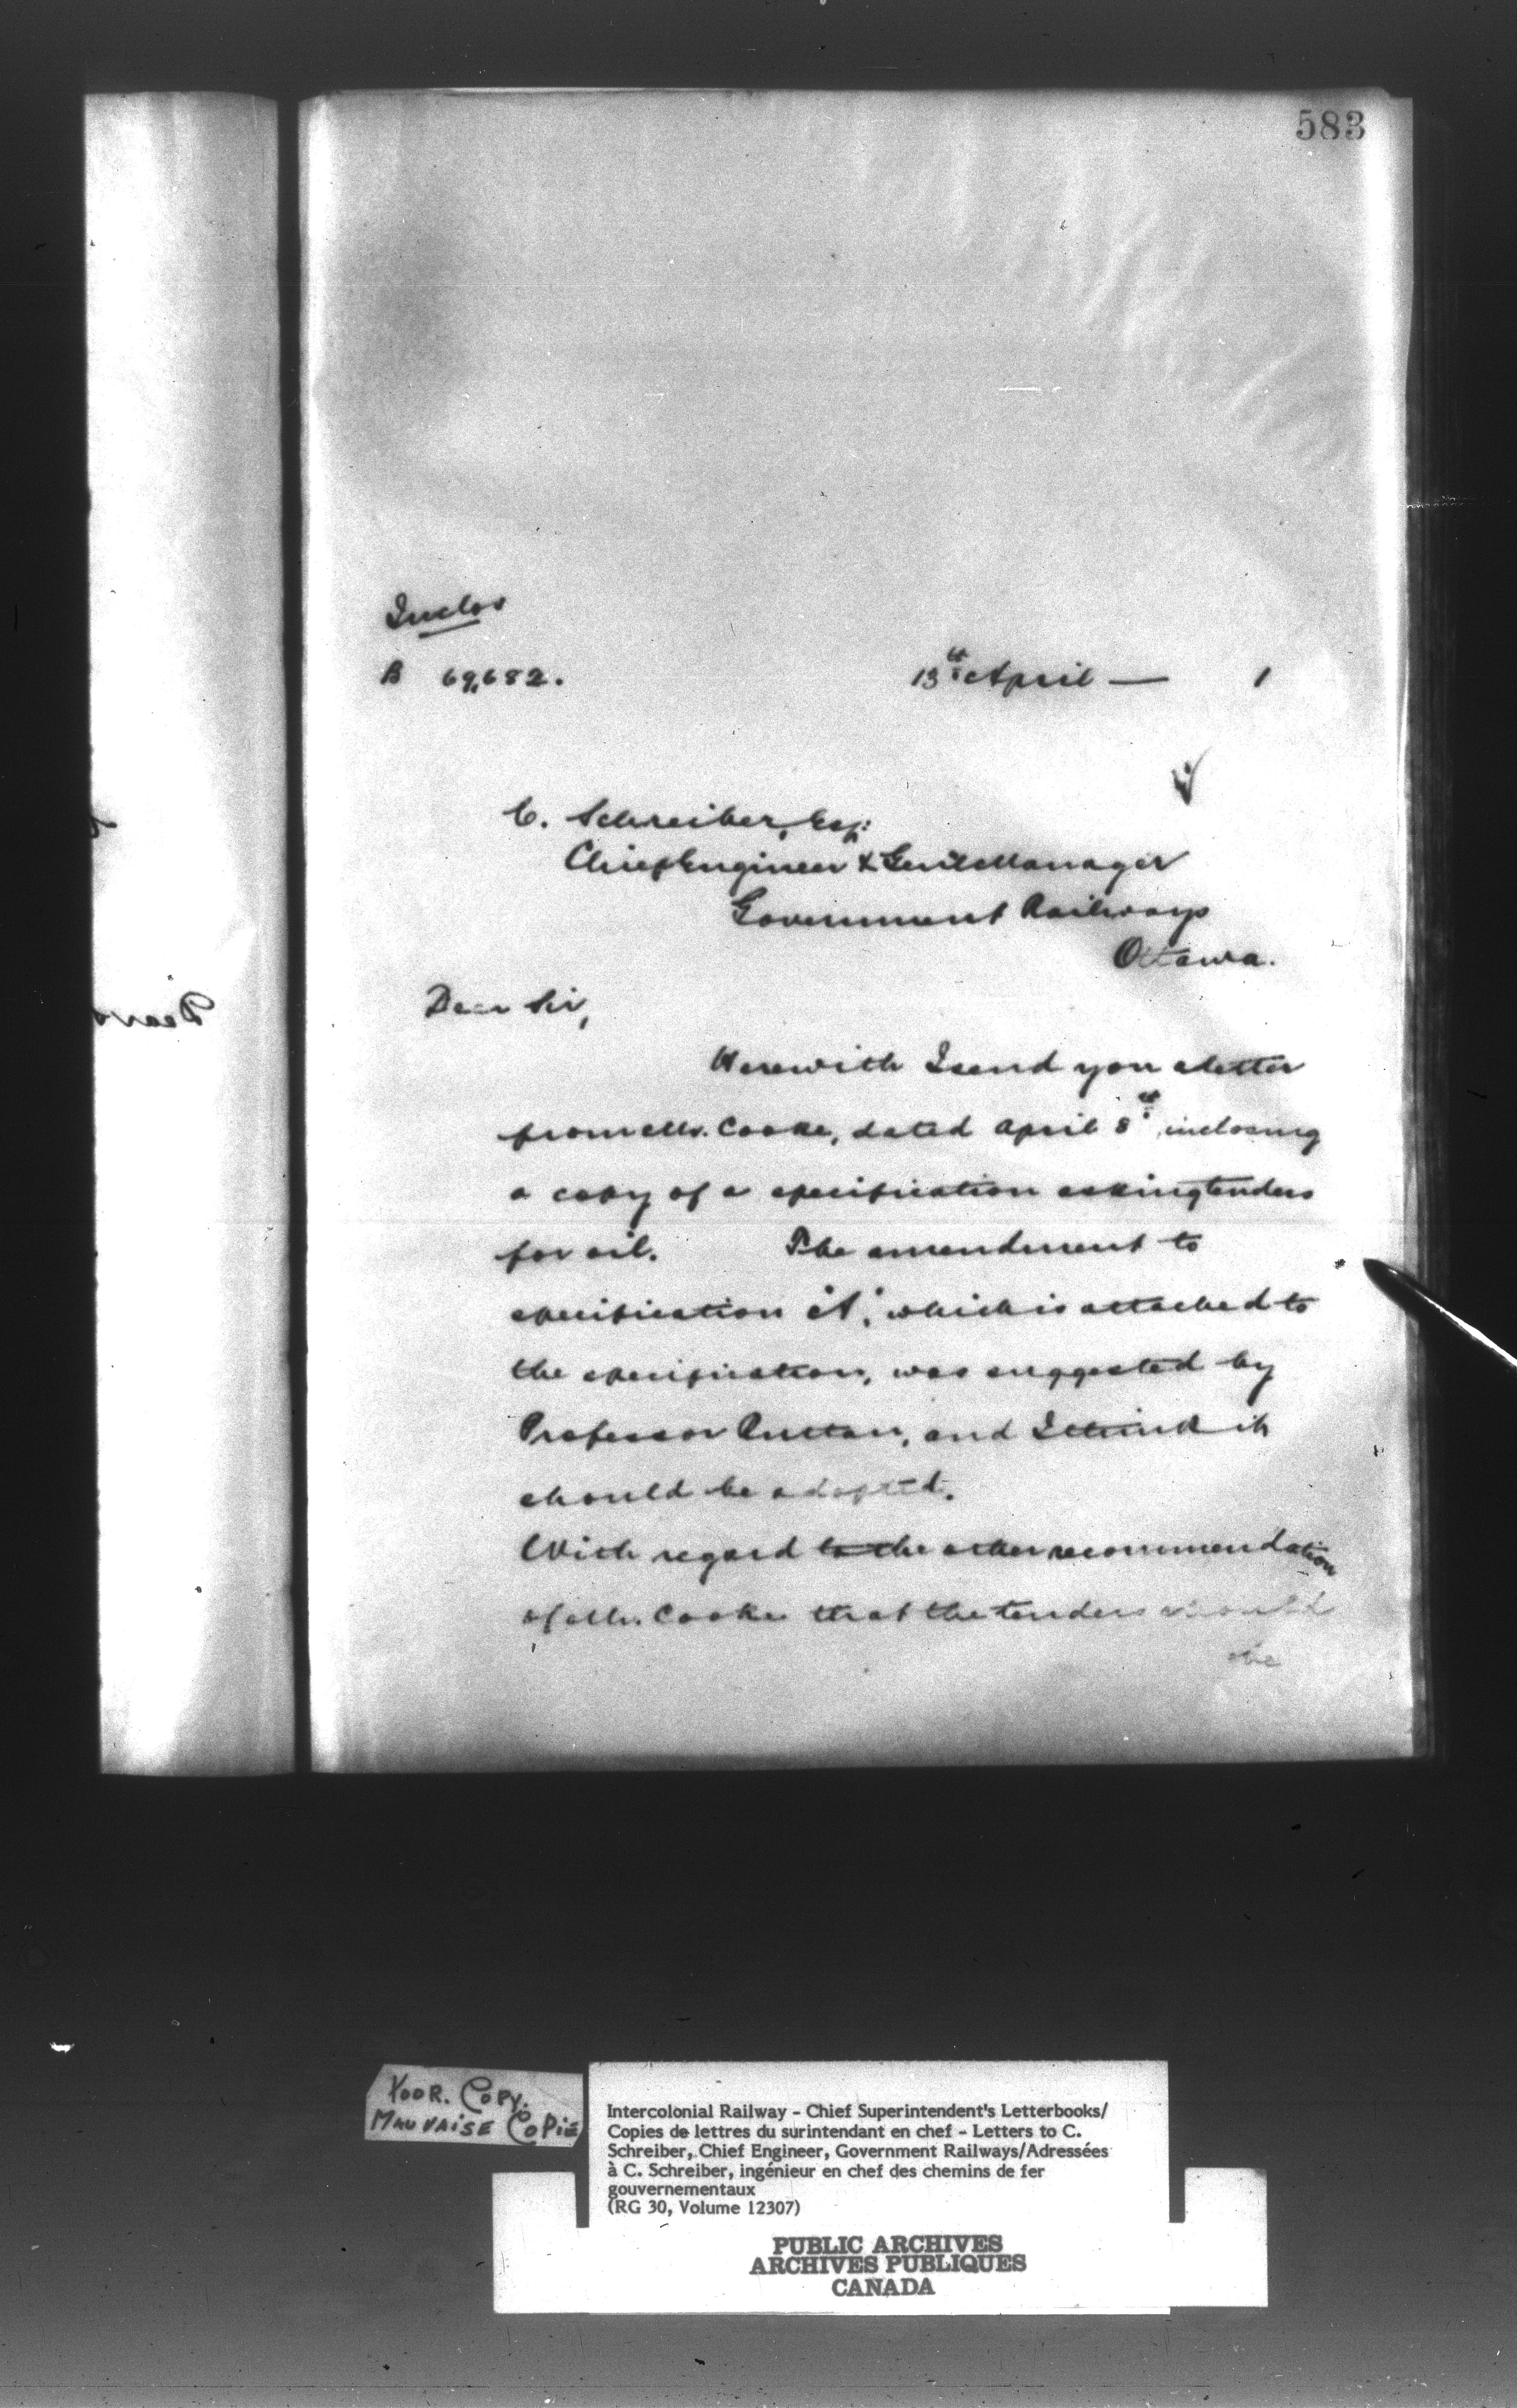 583
Inclos
B 69,682.
13th April — 1
C. Schreiber, Esq:
Chief Engineer & Genl Manager
Government Railways
Ottawa.
Dear Sir,
Herewith I send you a letter
from Mr. Cooke, dated April 8th, inclosing
a copy of a specification asking tenders
for oil. The amendment to
specification "A", which is attached to
the specification, was suggested by
Professor Ruttan, and I think it
should be adopted.
With regard to the other recommendation
of Mr. Cooke that the tenders should
be
Dear
POOR. COPY.
MAUVAISE COPIE
Intercolonial Railway - Chief Superintendent's Letterbooks/
Copies de lettres du surintendant en chef - Letters to C.
Schreiber, Chief Engineer, Government Railways/Adressées
à C. Schreiber, ingénieur en chef des chemins de fer
gouvernementaux
(RG 30, Volume 12307)
PUBLIC ARCHIVES
ARCHIVES PUBLIQUES
CANADA